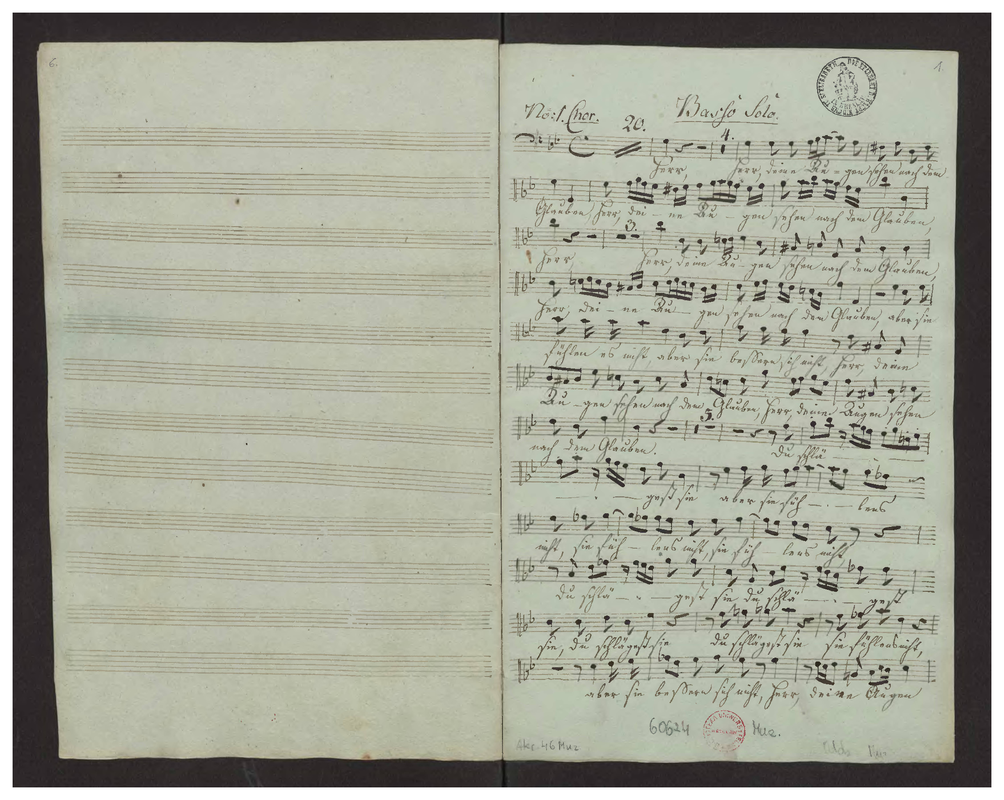 6.
1.
No: 1. Chor. 20. Basso Solo.
4.
Herr, Herr, deine Au - gen sehen nach dem
Glauben, Herr, dei - ne Au - gen sehen nach dem Glauben,
3.
Herr, Herr, deine Au - gen sehen nach dem Glauben,
Herr, dei - ne Au - gen sehen nach dem Glauben, aber sie
fühlen es nicht, aber sie bessern sich nicht, Herr, deine
Au - gen sehen nach dem Glauben, Herr, deine Augen sehen
5.
nach dem Glauben. Du schlä
- - - gest sie aber sie füh - . - lens
nicht, sie füh - lens nicht, sie füh lens nicht,
du schlä - - - gest sie du schlä - - - gest
sie, du schlägest sie du schlägest sie sie fühlens nicht,
aber sie bessern sich nicht, Herr, deine Augen
60624 Muz.
Akc. 46 Muz